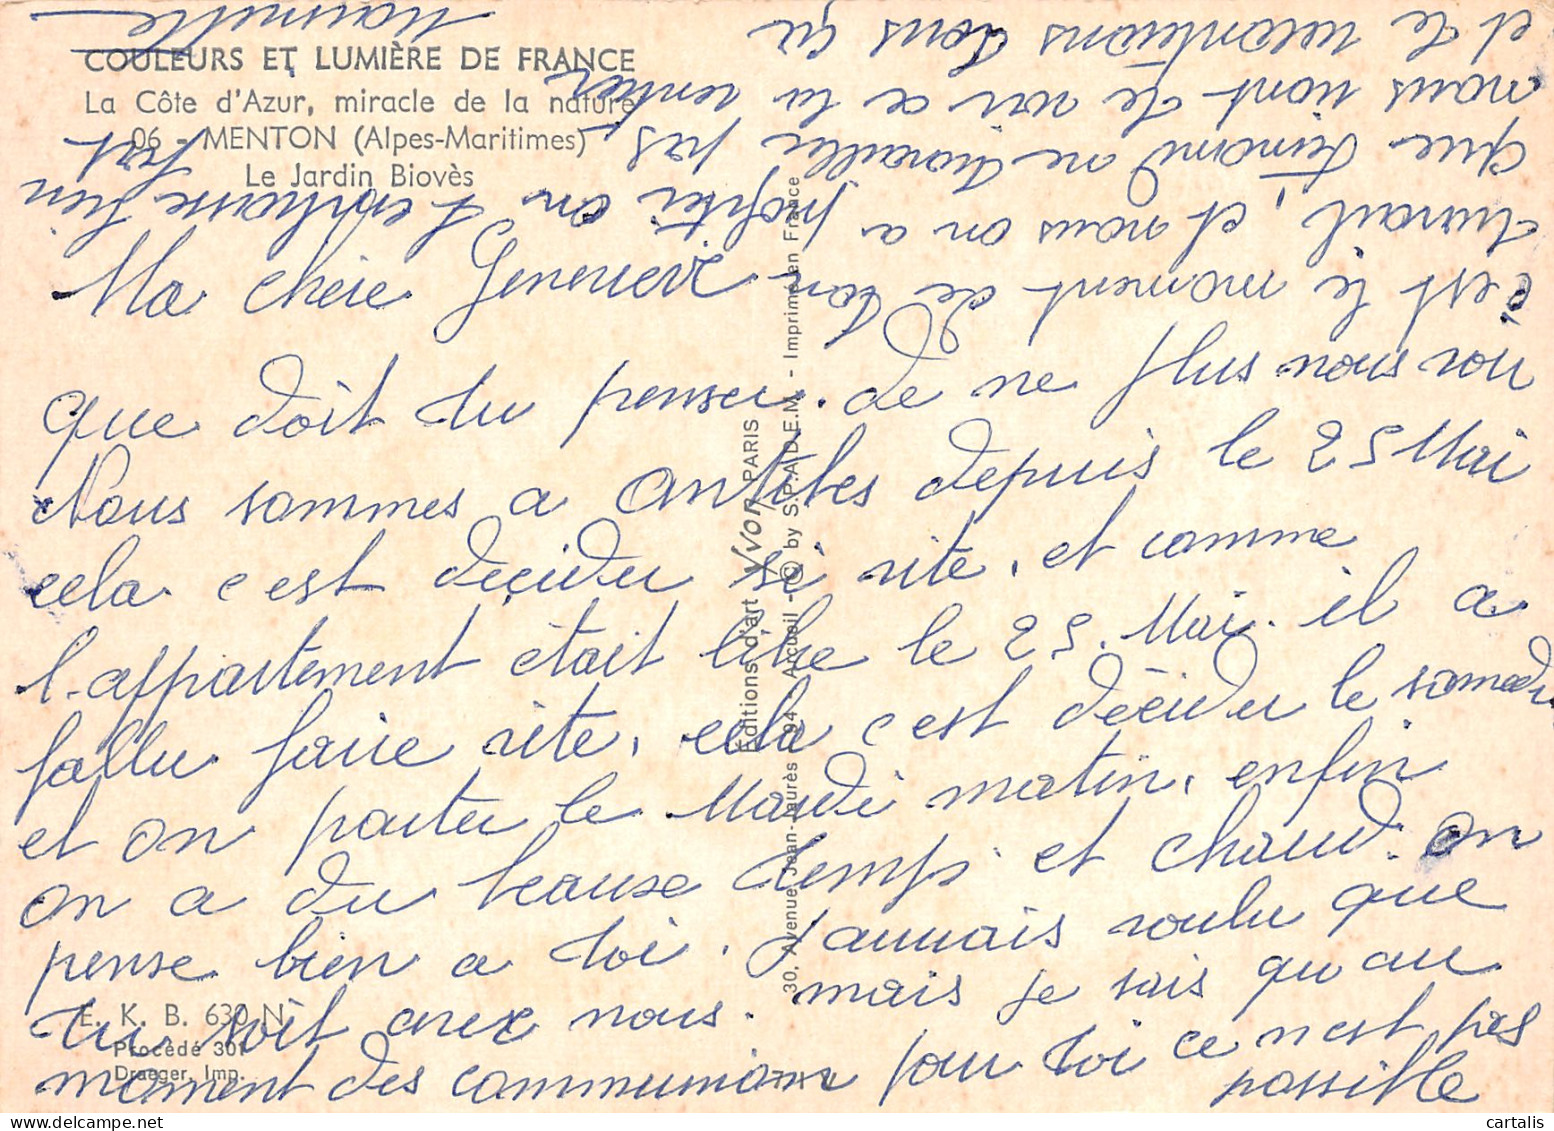 COULEURS ET LUMIÈRE DE FRANCE
La Côte d'Azur, miracle de la nature
06 - MENTON (Alpes-Maritimes)
Le Jardin Biovès
Ma chère Genevieve
que doit tu penser. de ne plus nous voir
Nous sommes a Antibes depuis le 25 Mai
cela c'est décider si vite. et comme
l'appartement était libre le 25. Mai. il a
fallu faire vite. cela c'est décider le samedi
et on parter le Mardi matin. enfin
on a du beause temps et chaud. on
pense bien a toi. J'aurrais voulu que
tu soit avex nous. mais je sais qu'au
moment des communion pour toi ce n'est pas
possible
c'est le moment de ton
travail, et nous on a profiter on
que Fernand ne travailler pas
nous vont te voir ce tu rentrer
et te racontrons tous ça
t'embrasse bien
fort
Éditions d'art YVON, PARIS
30, Avenue Jean-Jaurès - 94 - Arcueil - © by S.P.A.D.E.M. - Imprimé en France
E. K. B. 630 N
Procédé 301
Draeger, Imp.
cartalis